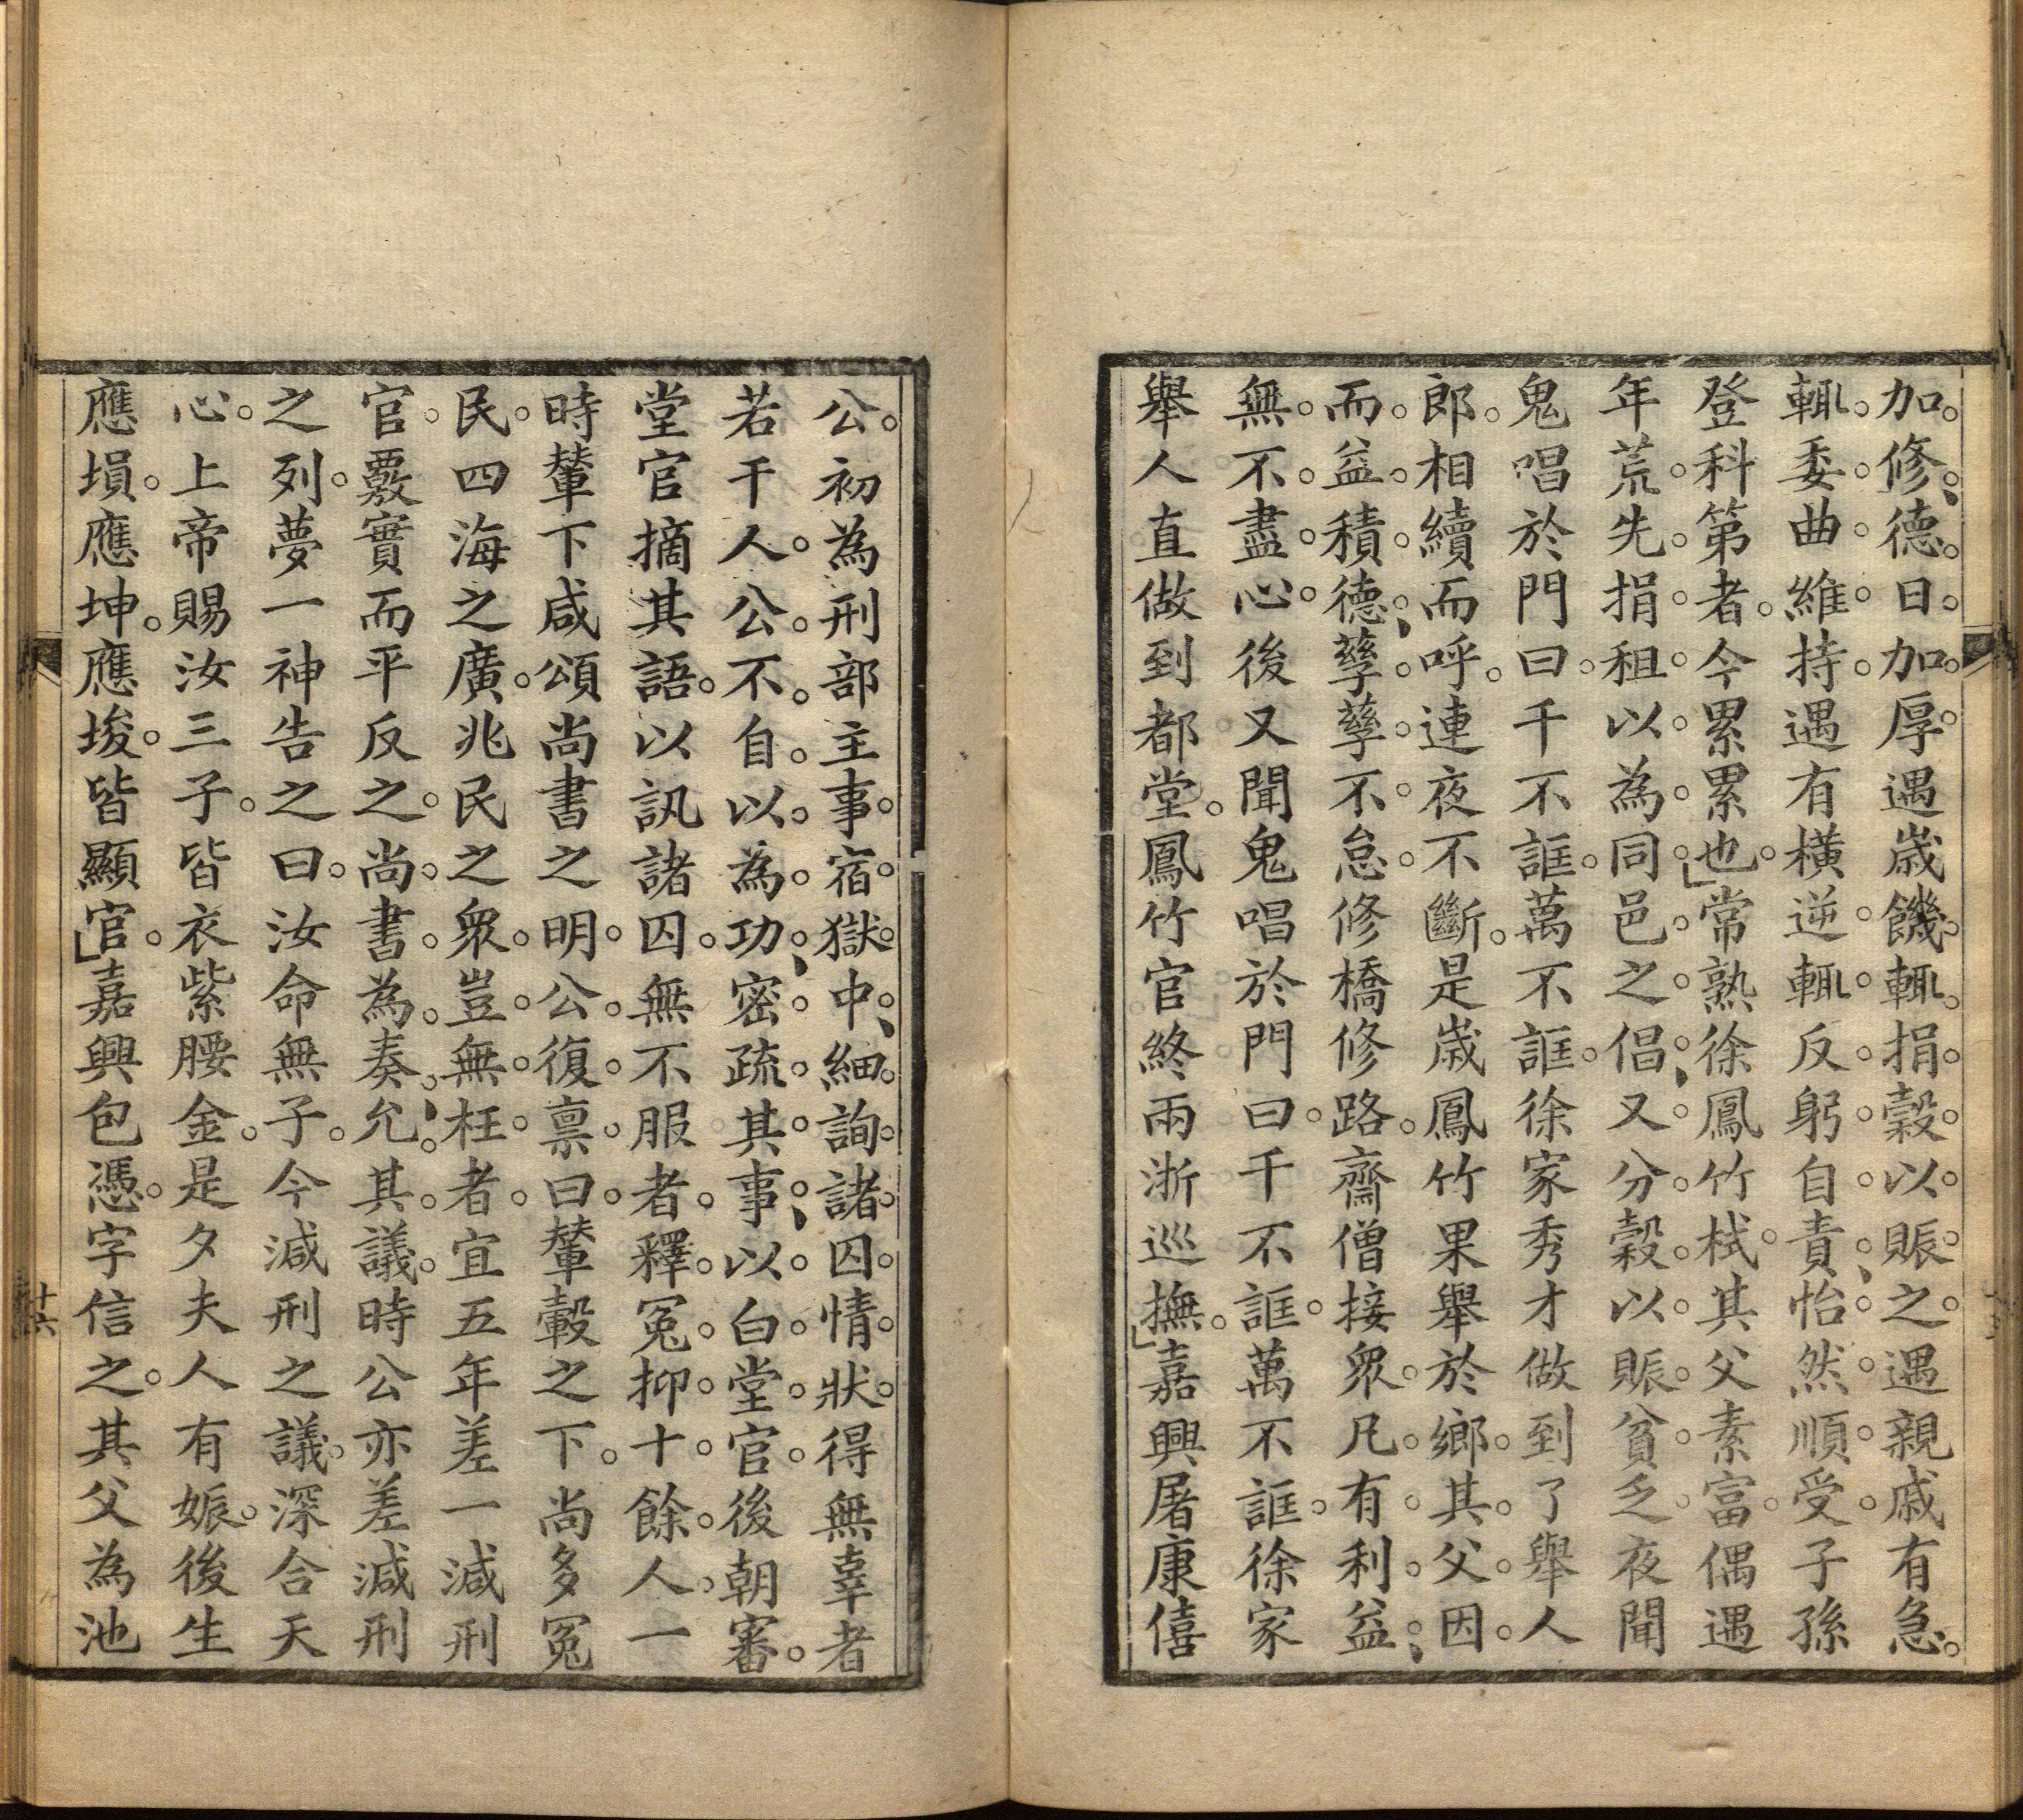 加修德日加厚遇歲饑輒捐穀以賑之遇親戚有急
輒委曲維持遇有橫逆輒反躬自責怡然順受子孫
登科第者今累累也常熟徐鳳竹栻其父素富偶遇
年荒先捐租以為同邑之倡又分穀以賑貧乏夜聞
鬼唱於門曰千不誆萬不誆徐家秀才做到了舉人
郎相續而呼連夜不斷是歲鳳竹果舉於鄉其父因
而益積德孳孳不怠修橋修路齋僧接眾凡有利益
無不盡心後又聞鬼唱於門曰千不誆萬不誆徐家
舉人直做到都堂鳳竹官終兩浙巡撫嘉興屠康僖
公初為刑部主事宿獄中細詢諸囚情狀得無辜者
若干人公不自以為功密疏其事以白堂官後朝審
堂官摘其語以訊諸囚無不服者釋冤抑十餘人一
時輦下咸頌尚書之明公復禀曰輦轂之下尚多冤
民四海之廣兆民之眾豈無枉者宜五年差一減刑
官覈實而平反之尚書為奏允其議時公亦差減刑
之列夢一神告之曰汝命無子今減刑之議深合天
心上帝賜汝三子皆衣紫腰金是夕夫人有娠後生
應塤應坤應埈皆顯官嘉興包憑字信之其父為池
十六